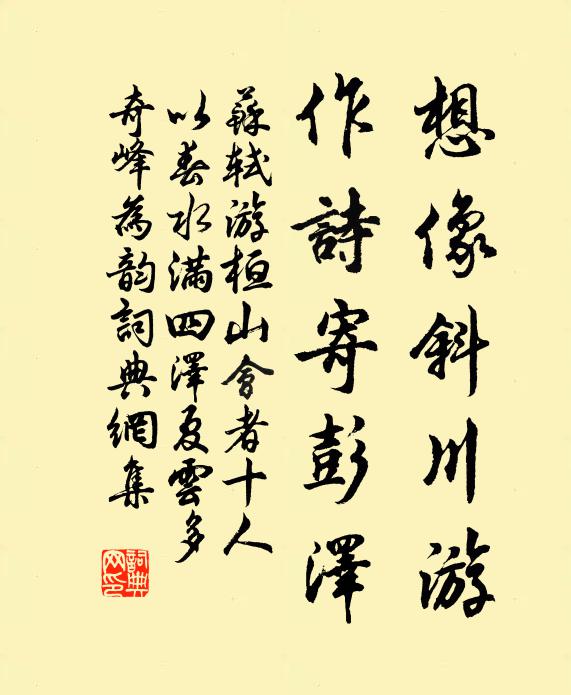 想像斜川游
作詩寄彭澤
蘇軾游桓山會者十人
以春水滿四澤夏雲多
奇峰為韵詞典網集
詞典
网印